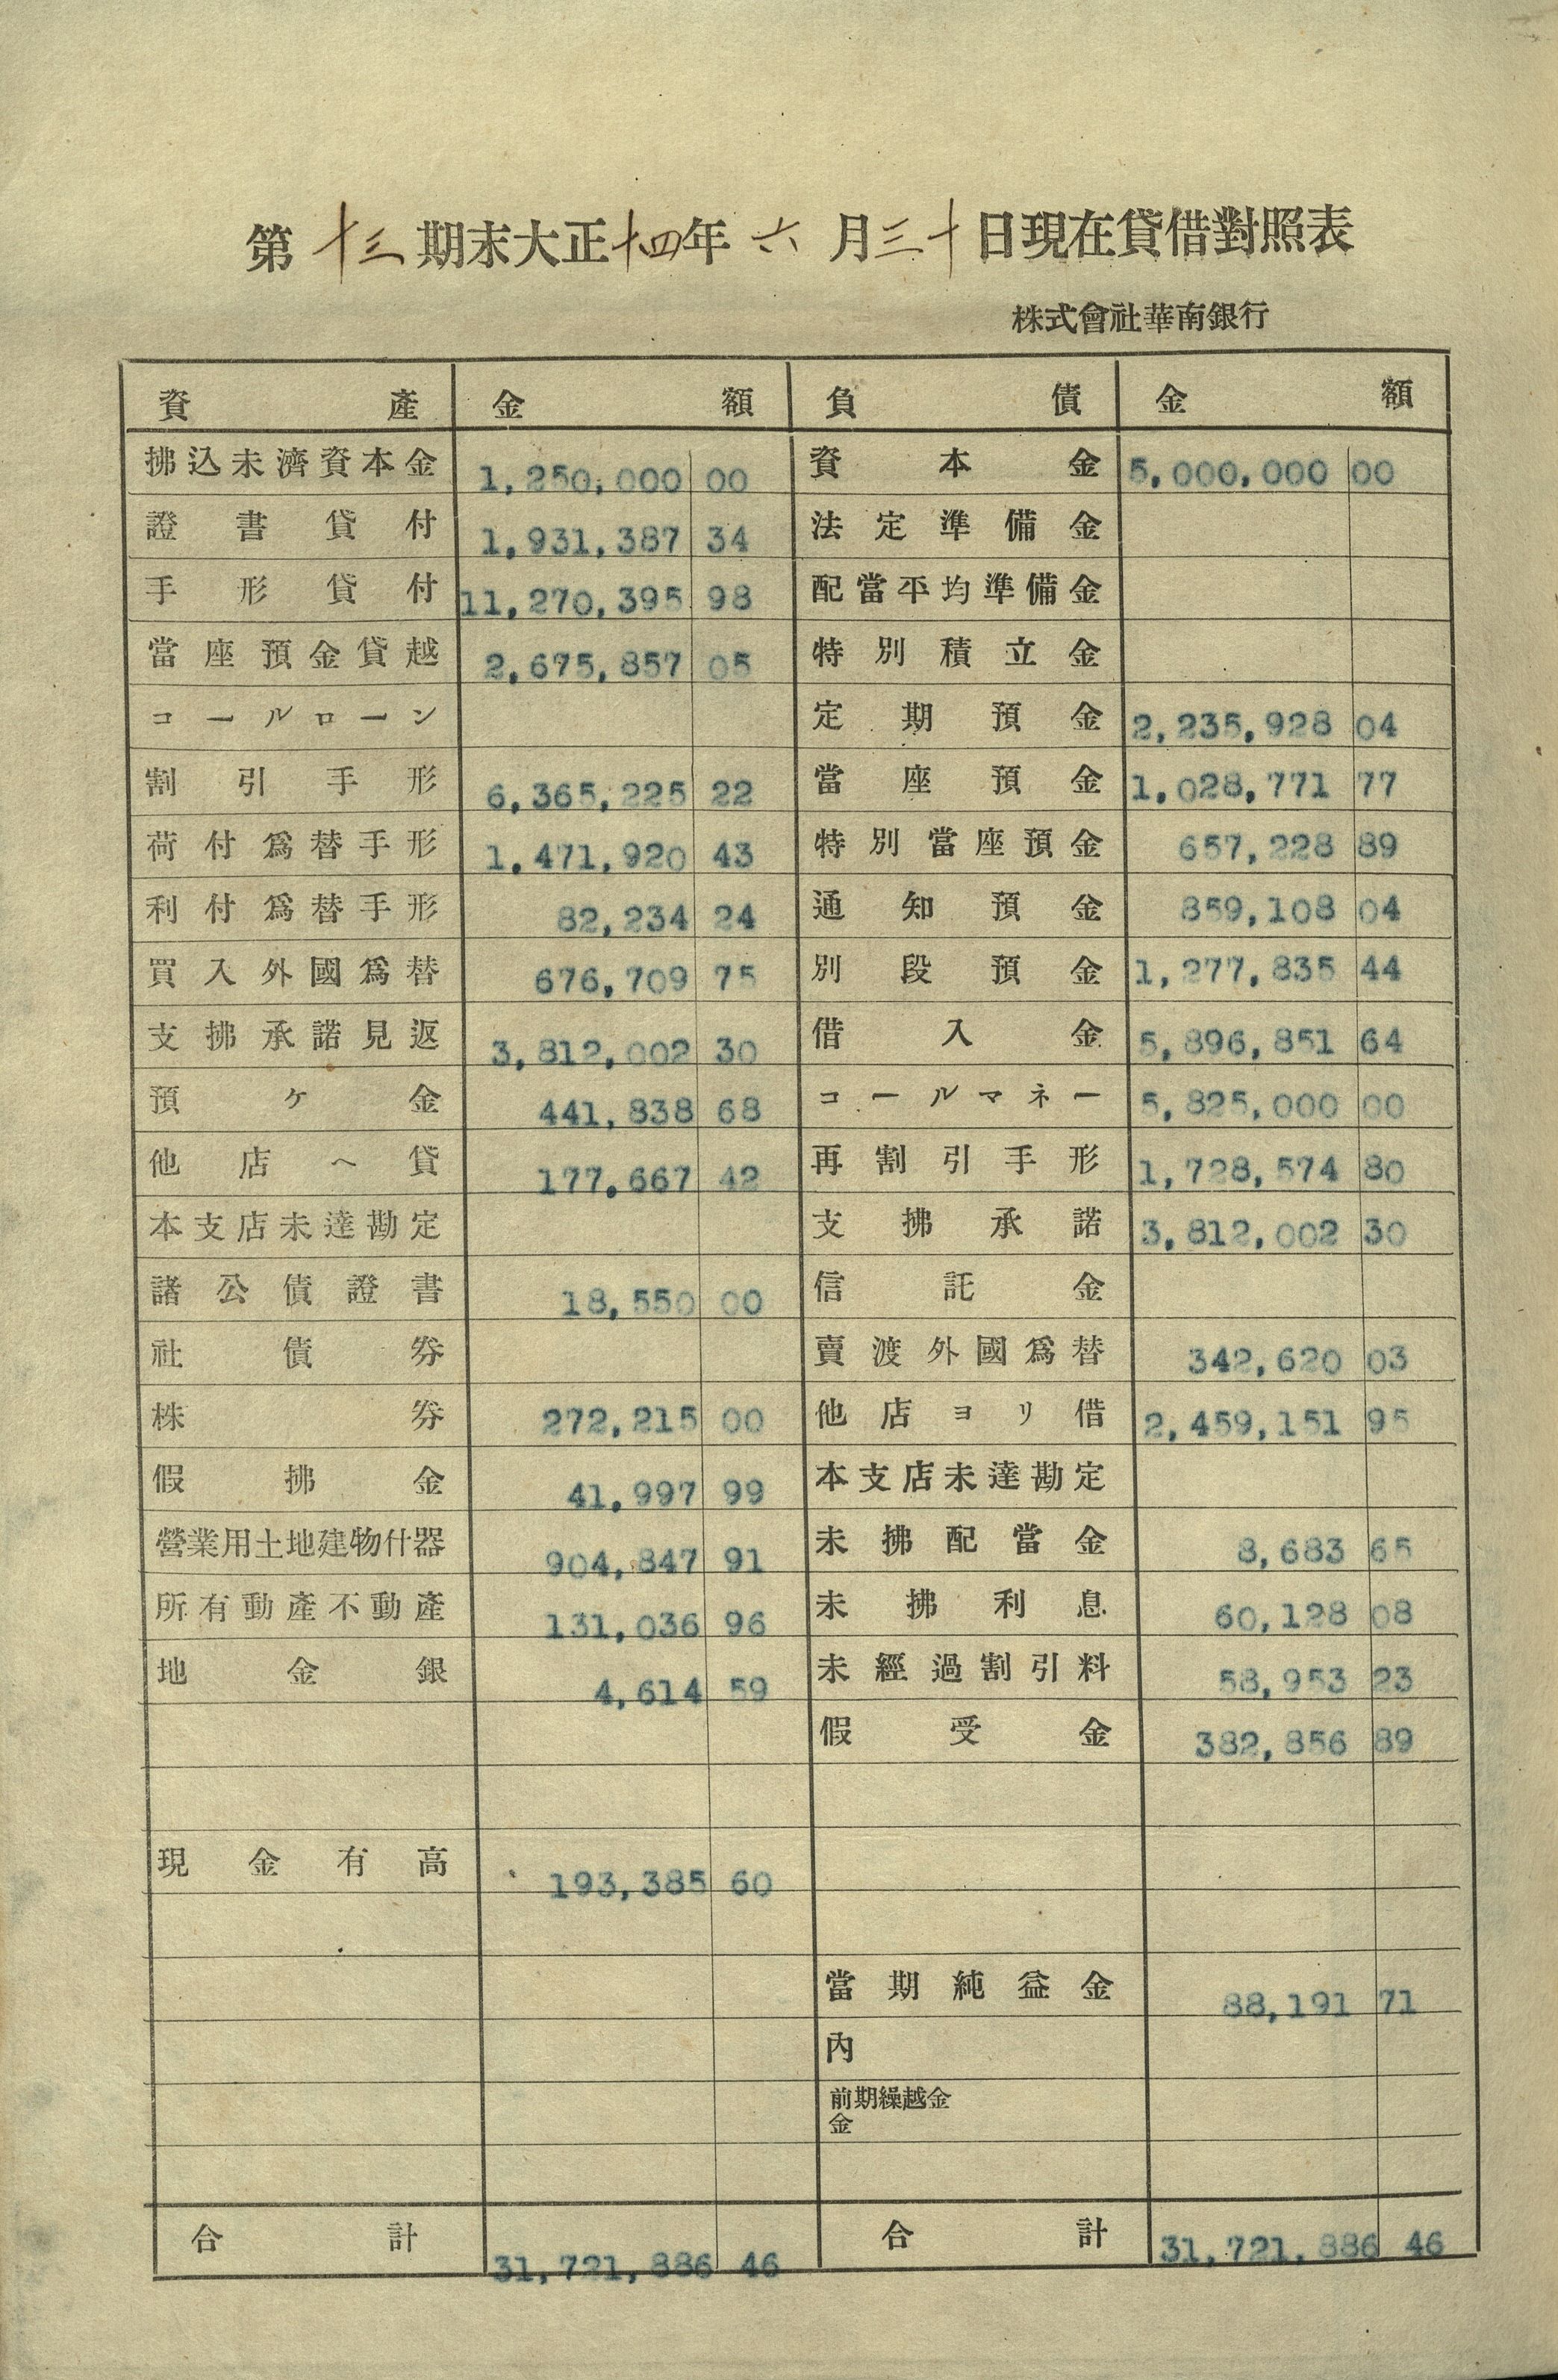 第十三期末大正十四年六月三十日現在貸借對照表
株式會社華南銀行
資產 金額 負債 金額
拂込未濟資本金 1,250,000 00 資本金 5,000,000 00
證書貸付 1,931,387 34 法定準備金
手形貸付 11,270,395 98 配當平均準備金
當座預金貸越 2,675,857 05 特別積立金
コールローン 定期預金 2,235,928 04
割引手形 6,365,225 22 當座預金 1,028,771 77
荷付爲替手形 1,471,920 43 特別當座預金 657,228 89
利付爲替手形 82,234 24 通知預金 859,108 04
買入外國爲替 676,709 75 別段預金 1,277,835 44
支拂承諾見返 3,812,002 30 借入金 5,896,851 64
預ケ金 441,838 68 コールマネー 5,825,000 00
他店へ貸 177,667 42 再割引手形 1,728,574 80
本支店未達勘定 支拂承諾 3,812,002 30
諸公債證書 18,550 00 信託金
社債券 賣渡外國爲替 342,620 03
株券 272,215 00 他店ヨリ借 2,459,151 95
假拂金 41,997 99 本支店未達勘定
營業用土地建物什器 904,847 91 未拂配當金 8,683 65
所有動產不動產 131,036 96 未拂利息 60,128 08
地金銀 4,614 59 未經過割引料 58,953 23
假受金 382,856 89
現金有高 193,385 60
當期純益金 88,191 71
內
前期繰越金
金
合計 31,721,886 46 合計 31,721,886 46